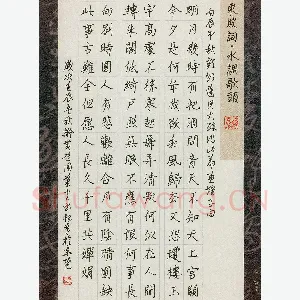 東坡詞·水調歌頭
丙辰中秋歡飲達旦大醉作此篇兼懷子由
明月幾時有把酒問青天不知天上宮闕
今夕是何年我欲乘風歸去又恐瓊樓玉
宇高處不勝寒起舞弄清影何似在人間
轉朱閣低綺戶照無眠不應有恨何事長
向別時圓人有悲歡離合月有陰晴圓缺
此事古難全但願人長久千里共嬋娟
歲次